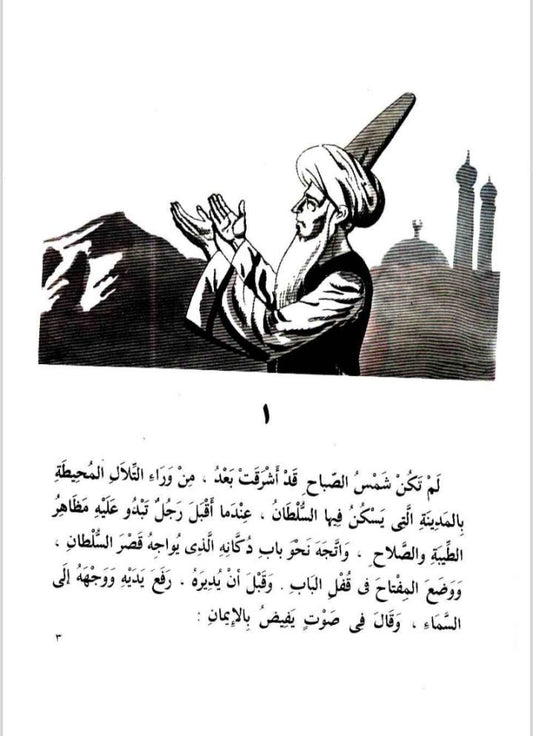 ١
لَمْ تَكُنْ شَمْسُ الصَّباحِ قَدْ أَشْرَقَتْ بَعْدُ ، مِنْ وَرَاءِ التِّلَالِ المُحِيطَةِ
بِالمَدِينَةِ الَّتى يَسْكُنُ فِيها السُّلْطَانُ ، عِنْدَما أَقْبَلَ رَجُلٌ تَبْدُو عَلَيْهِ مَظَاهِرُ
الطِّيبَةِ والصَّلاحِ ، وَاتَّجَهَ نَحْوَ بابِ دُكَّانِهِ الَّذِى يُواجِهُ قَصْرَ السُّلْطَانِ ،
وَوَضَعَ المِفْتاحَ فى قُفْلِ البَابِ . وَقَبْلَ أَنْ يُدِيرَهُ ، رَفَعَ يَدَيْهِ وَوَجْهَهُ إلَى
السَّمَاءِ ، وَقَالَ فِى صَوْتٍ يَفِيضُ بِالإِيمانِ :
٣